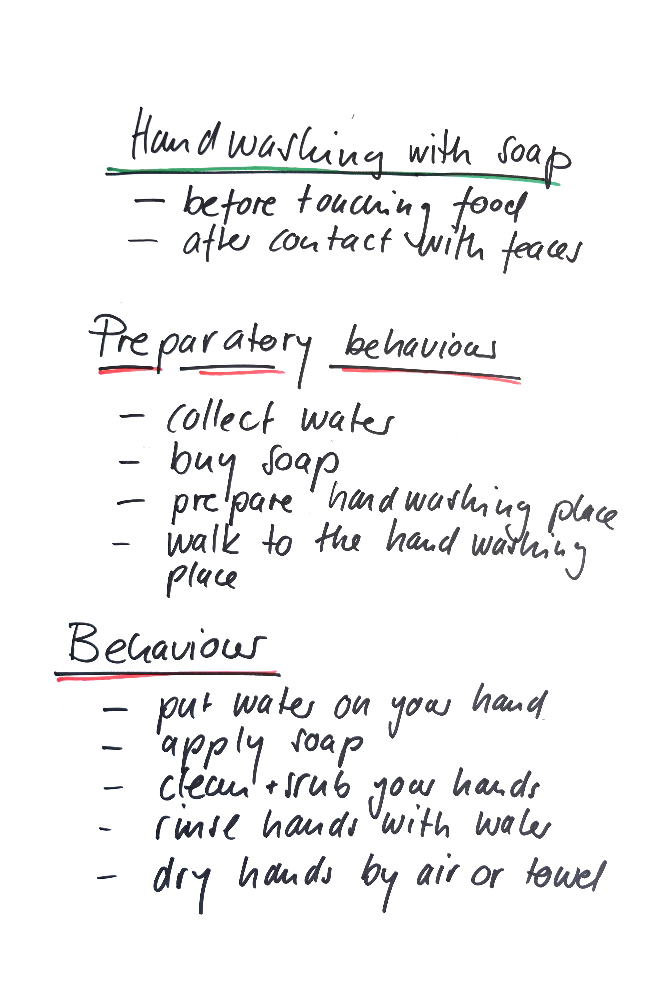 Handwashing with soap
– before touching food
– after contact with feaces
Preparatory behaviour
– collect water
– buy soap
– prepare handwashing place
– walk to the hand washing
place
Behaviour
– put water on your hand
– apply soap
– clean + srub your hands
- rinse hands with water
– dry hands by air or towel